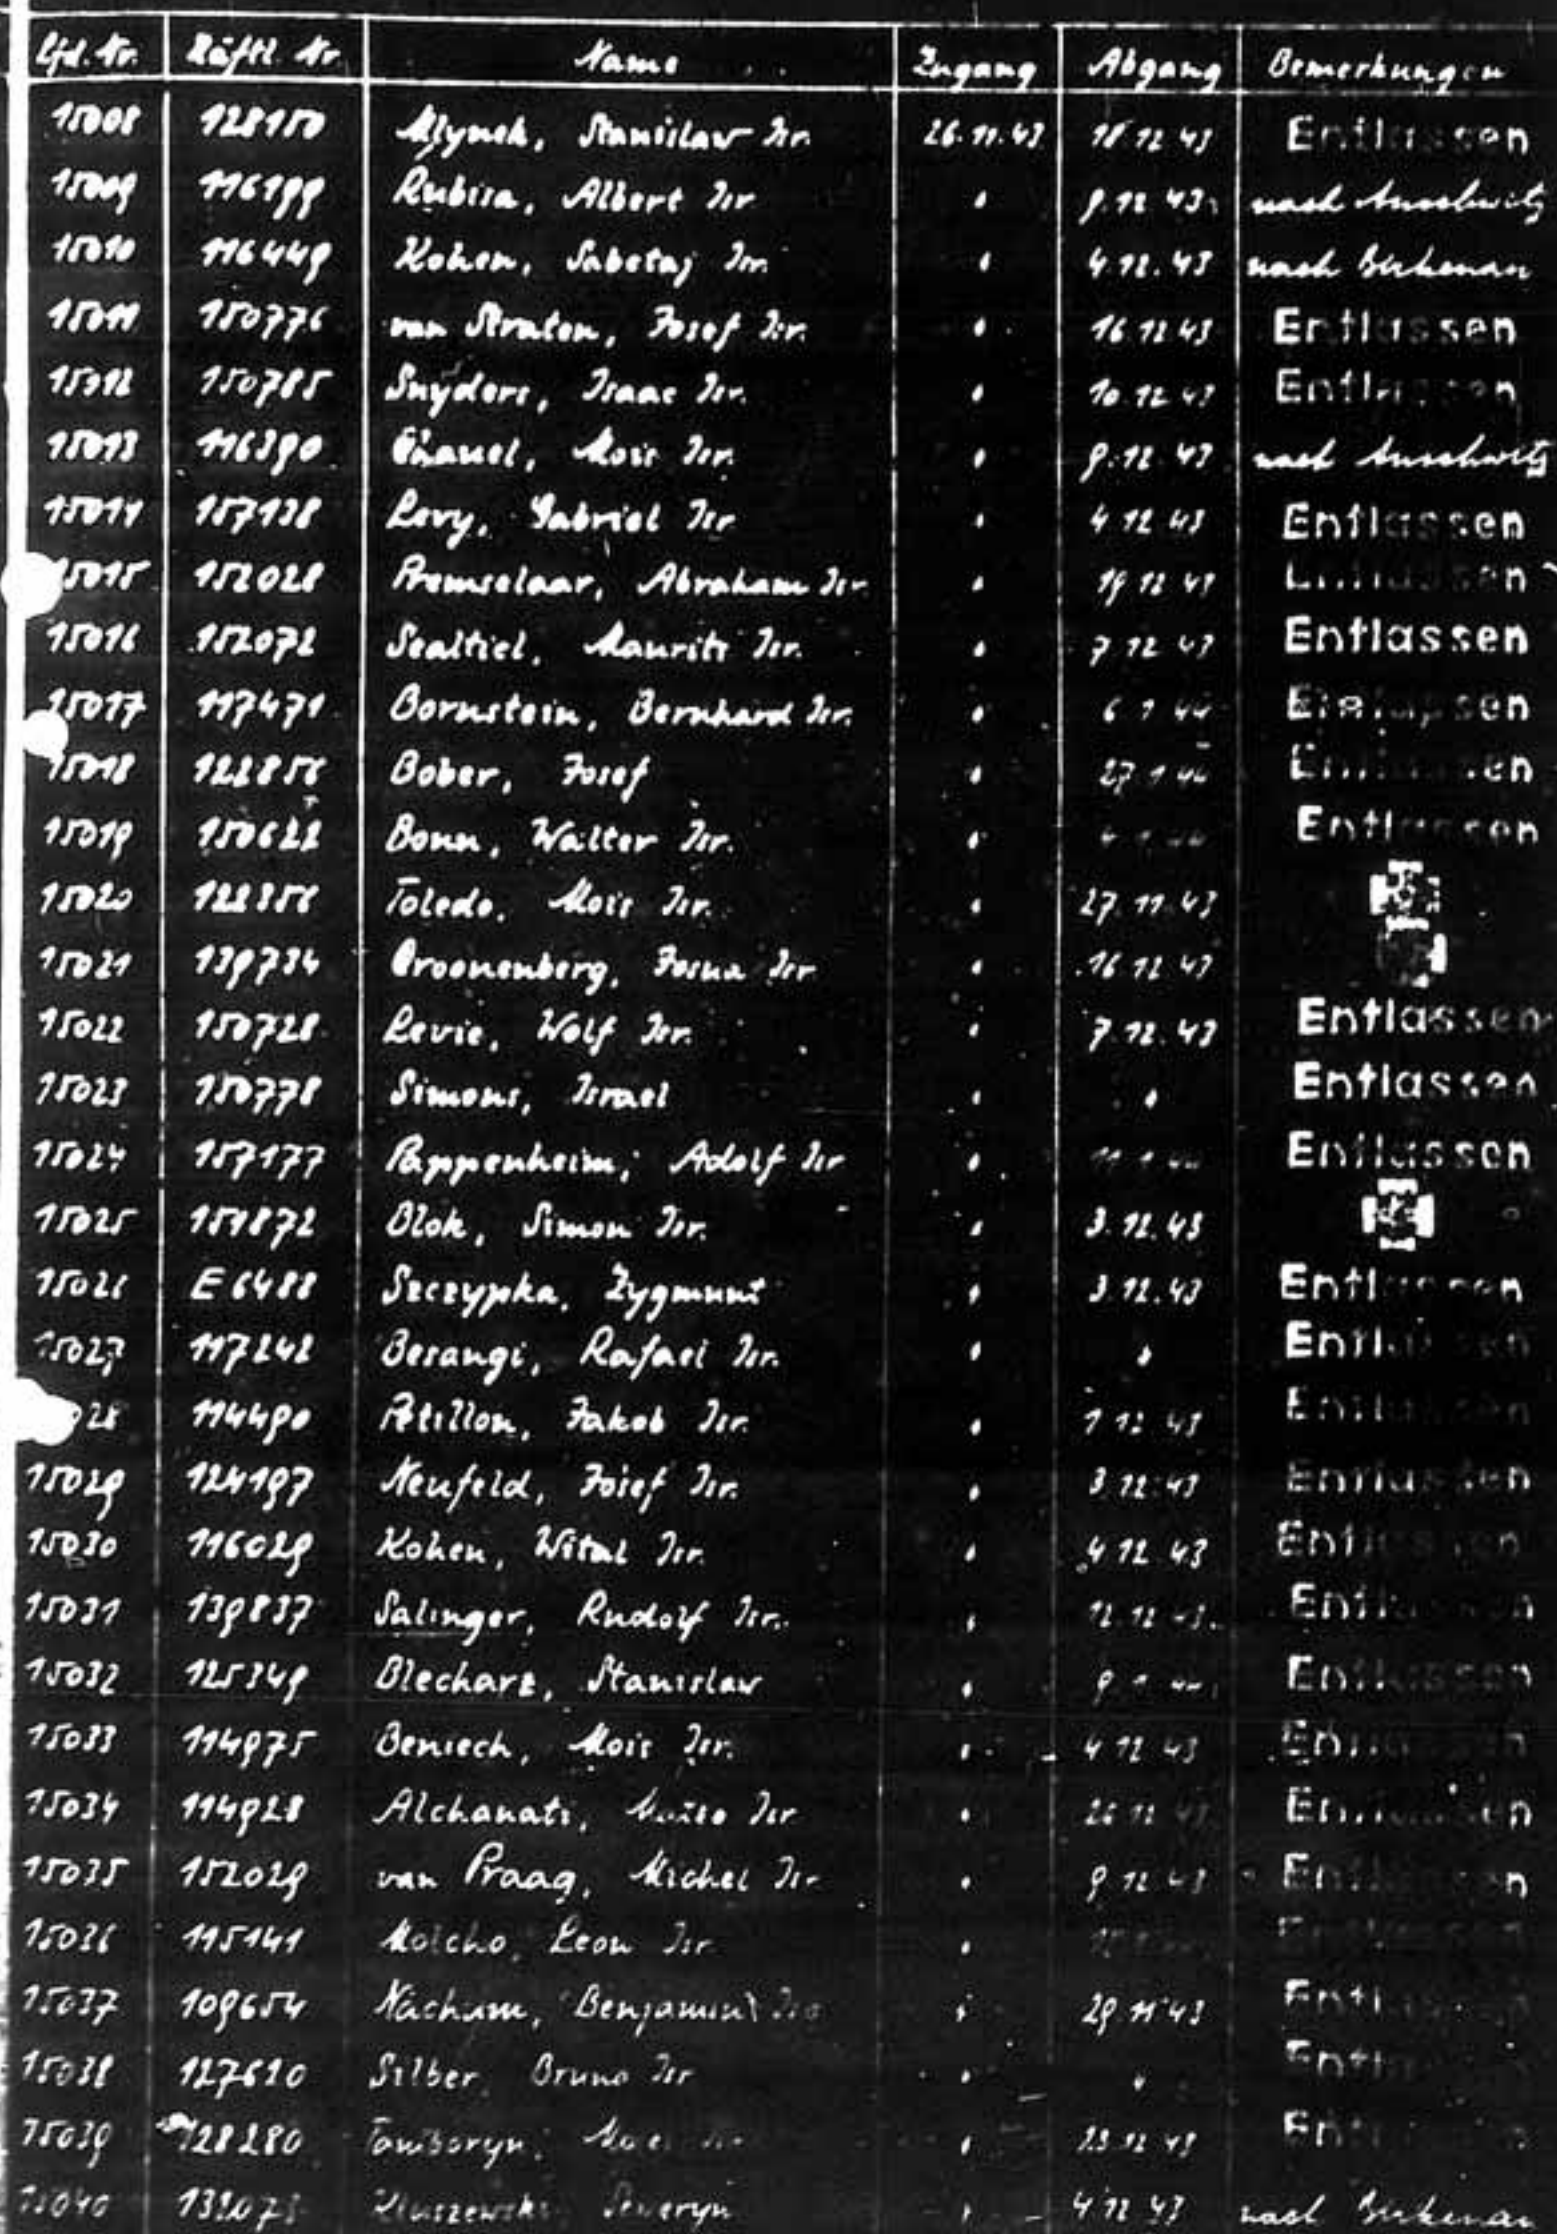 Lfd. Nr. Häftl. Nr. Name Zugang Abgang Bemerkungen
15008 128150 Mlynek, Stanislaw Isr. 26.11.43 18.12.43 Entlassen
15009 116199 Rubisa, Albert Isr. " 9.12.43 nach Auschwitz
15010 116449 Kohen, Sabetaj Isr. " 4.12.43 nach Birkenau
15011 150776 van Straten, Josef Isr. " 16.12.43 Entlassen
15012 150785 Snyders, Isaac Isr. " 10.12.43 Entlassen
15013 116390 Mois Isr. " 9.12.43 nach Auschwitz
15014 157138 Levy, Gabriel Isr. " 4.12.43 Entlassen
15015 152028 Premselaar, Abraham Isr. " 19.12.43 Entlassen
15016 152072 Sealtiel, Maurits Isr. " 7.12.43 Entlassen
15017 117471 Bornstein, Bernhard Isr. " 6.1.44 Entlassen
15018 122856 Bober, Josef " 27.1.44 Entlassen
15019 150622 Bonn, Walter Isr. " Entlassen
15020 122356 Toledo, Mois Isr. " 27.11.43
15021 139734 Croonenberg, Isr. " 16.12.43
15022 150728 Levie, Wolf Isr. " 7.12.43 Entlassen
15023 150778 Simons, Israel " " Entlassen
15024 157177 Pappenheim, Adolf Isr. " Entlassen
15025 151872 Blok, Simon Isr. " 3.12.43
15026 E 6488 Szczypka, Zygmunt " 3.12.43 Entlassen
15027 117242 Besangi, Rafael Isr. " " Entlassen
028 114490 Petillon, Jakob Isr. " 1.12.43 Entlassen
15029 124197 Neufeld, Josef Isr. " 3.12.43 Entlassen
15030 116029 Kohen, Wital Isr. " 4.12.43 Entlassen
15031 139837 Salinger, Rudolf Isr. " 12.12.43 Entlassen
15032 125349 Blecharz, Stanislaw " Entlassen
15033 114975 Beniech, Mois Isr. " 4.12.43 Entlassen
15034 114928 Alchanati, Isr. " Entlassen
15035 152029 van Praag, Michel Isr. " 9.12.43 Entlassen
15036 115141 Molcho, Leon Isr. " Entlassen
15037 109654 Nachum, Benjamin " 29.11.43 Entlassen
15038 127610 Silber, Bruno Isr. " " Entlassen
15039 128280 " 23.12.43
15040 Seweryn " 4.12.43 nach Birkenau